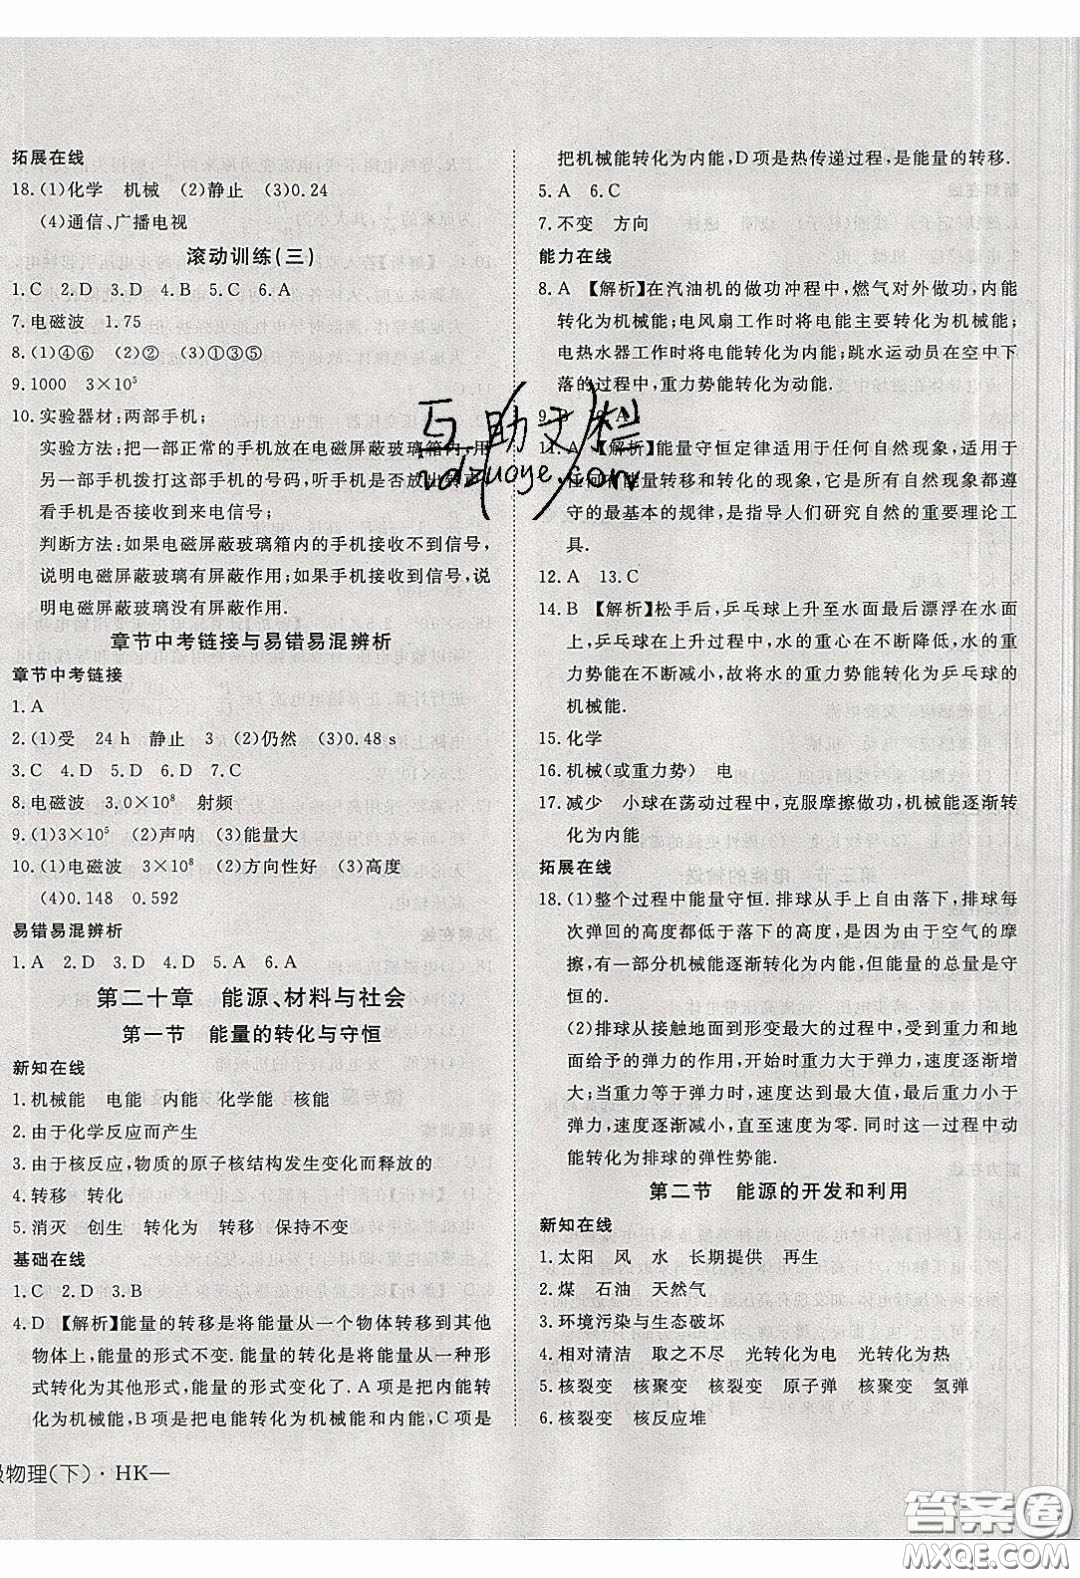 拓展在线
18.(1)化学 机械 (2)静止 (3)0.24
(4)通信、广播电视
滚动训练(三)
1.C 2.D 3.D 4.B 5.C 6.A
7.电磁波 1.75
8.(1)④⑥ (2)② (3)①③⑤
9.1000 3×10⁵
10.实验器材:两部手机;
实验方法:把一部正常的手机放在电磁屏蔽玻璃箱内,用
另一部手机拨打这部手机的号码,听手机是否发出
看手机是否接收到来电信号;
判断方法:如果电磁屏蔽玻璃箱内的手机接收不到信号,
说明电磁屏蔽玻璃有屏蔽作用;如果手机接收到信号,说
明电磁屏蔽玻璃没有屏蔽作用.
章节中考链接与易错易混辨析
章节中考链接
1.A
2.(1)受 24 h 静止 3 (2)仍然 (3)0.48 s
3.C 4.D 5.D 6.D 7.C
8.电磁波 3.0×10⁸ 射频
9.(1)3×10⁵ (2)声呐 (3)能量大
10.(1)电磁波 3×10⁸ (2)方向性好 (3)高度
(4)0.148 0.592
易错易混辨析
1.A 2.D 3.D 4.D 5.A 6.A
第二十章 能源、材料与社会
第一节 能量的转化与守恒
新知在线
1.机械能 电能 内能 化学能 核能
2.由于化学反应而产生
3.由于核反应,物质的原子核结构发生变化而释放的
4.转移 转化
5.消灭 创生 转化为 转移 保持不变
基础在线
1.C 2.D 3.B
4.D 【解析】能量的转移是将能量从一个物体转移到其他
物体上,能量的形式不变.能量的转化是将能量从一种形
式转化为其他形式,能量的形式变化了.A项是把内能转
化为机械能,B项是把电能转化为机械能和内能,C项是
级物理(下)·HK—
把机械能转化为内能,D项是热传递过程,是能量的转移.
5.A 6.C
7.不变 方向
能力在线
8.A 【解析】在汽油机的做功冲程中,燃气对外做功,内能
转化为机械能;电风扇工作时将电能主要转化为机械能;
电热水器工作时将电能转化为内能;跳水运动员在空中下
落的过程中,重力势能转化为动能.
9.B 10.A
11.A 【解析】能量守恒定律适用于任何自然现象,适用于
任何有能量转移和转化的现象,它是所有自然现象都遵
守的最基本的规律,是指导人们研究自然的重要理论工
具.
12.A 13.C
14.B 【解析】松手后,乒乓球上升至水面最后漂浮在水面
上,乒乓球在上升过程中,水的重心在不断降低,水的重
力势能在不断减小,故将水的重力势能转化为乒乓球的
机械能.
15.化学
16.机械(或重力势) 电
17.减少 小球在荡动过程中,克服摩擦做功,机械能逐渐转
化为内能
拓展在线
18.(1)整个过程中能量守恒.排球从手上自由落下,排球
每次弹回的高度都低于落下的高度,是因为由于空气的摩
擦,有一部分机械能逐渐转化为内能,但能量的总量是守
恒的.
(2)排球从接触地面到形变最大的过程中,受到重力和
地面给予的弹力的作用,开始时重力大于弹力,速度逐渐增
大;当重力等于弹力时,速度达到最大值,最后弹力大于重
力,速度逐渐减小,直至速度为零.同时这一过程中动
能转化为排球的弹性势能.
第二节 能源的开发和利用
新知在线
1.太阳 风 水 长期提供 再生
2.煤 石油 天然气
3.环境污染与生态破坏
4.相对清洁 取之不尽 光转化为电 光转化为热
5.核裂变 核聚变 核裂变 原子弹 核聚变 氢弹
6.核裂变 核反应堆
答案圈
MXQE.COM